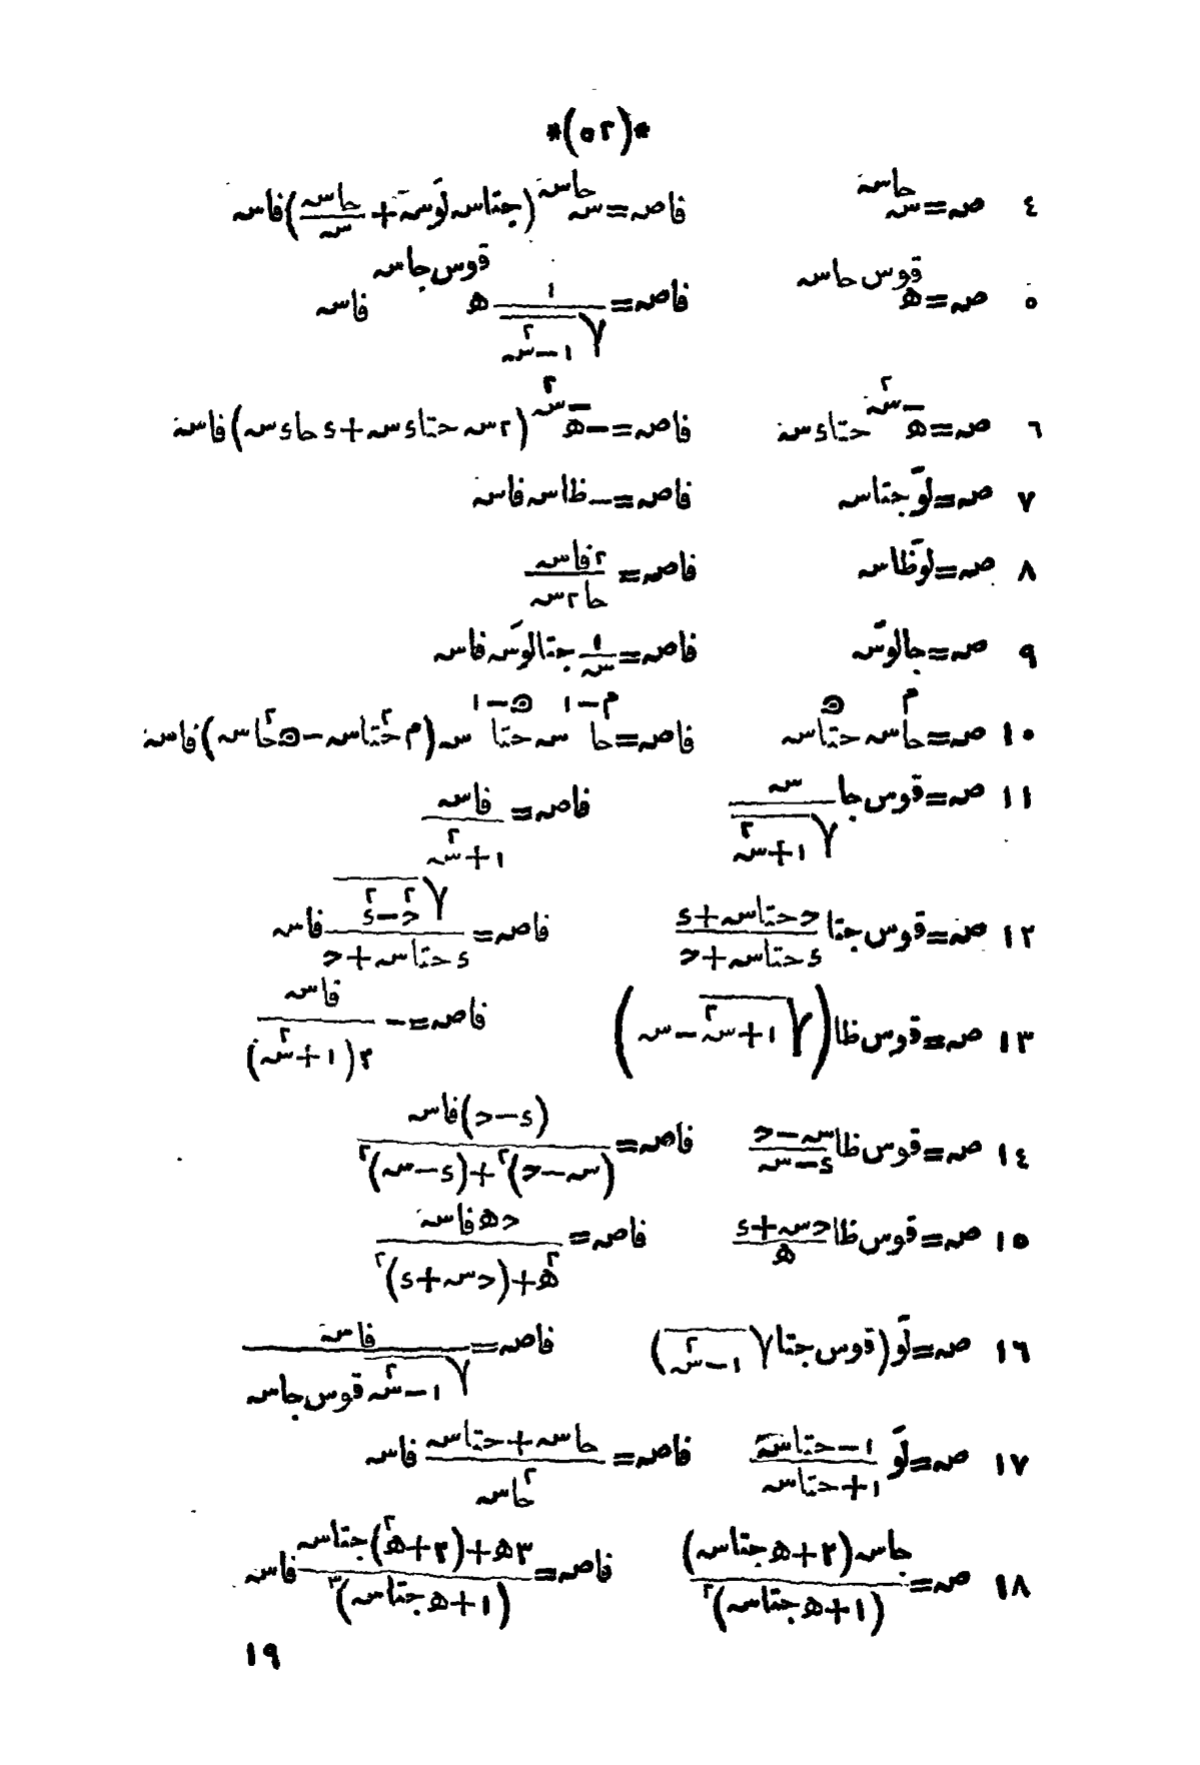 *(٥٢)*
٤ ص=س^حاس فاص=س^حاس(جتاس لوَس+حاس/س)فاس
٥ ص=ه^قوس حاس فاص=١/√(١-س^٢) ه^قوس جاس فاس
٦ ص=ه^-س^٢ حتاءس فاص=-ه^-س^٢(٢س حتاءس+ء حاءس)فاس
٧ ص=لوَجتاس فاص=-ظاس فاس
٨ ص=لوَظاس فاص=٢فاس/حا٢س
٩ ص=جالوَس فاص=١/س جتالوَس فاس
١٠ ص=حا^م س حتا^ه س فاص=حا^م-١ س حتا^ه-١ س(م حتا^٢س-ه حا^٢س)فاس
١١ ص=قوس جا س/√(١+س^٢) فاص=فاس/(١+س^٢)
١٢ ص=قوس جتا (حـ حتاس+ء)/(ء حتاس+حـ) فاص=√(حـ^٢-ء^٢)/(ء حتاس+حـ) فاس
١٣ ص=قوس ظا(√(١+س^٢)-س) فاص=-فاس/٢(١+س^٢)
١٤ ص=قوس ظا (س-حـ)/(ء-س) فاص=(ء-حـ)فاس/((س-حـ)^٢+(ء-س)^٢)
١٥ ص=قوس ظا (حـس+ء)/ه فاص=حـ ه فاس/(ه^٢+(حـس+ء)^٢)
١٦ ص=لوَ(قوس جتا√(١-س^٢)) فاص=فاس/(√(١-س^٢) قوس جاس)
١٧ ص=لوَ (١-حتاس)/(١+حتاس) فاص=(حاس+حتاس)/حا^٢س فاس
١٨ ص=جاس(٢+ه جتاس)/(١+ه جتاس)^٢ فاص=(٣ه+(٢+ه^٢)جتاس)/(١+ه جتاس)^٣ فاس
١٩